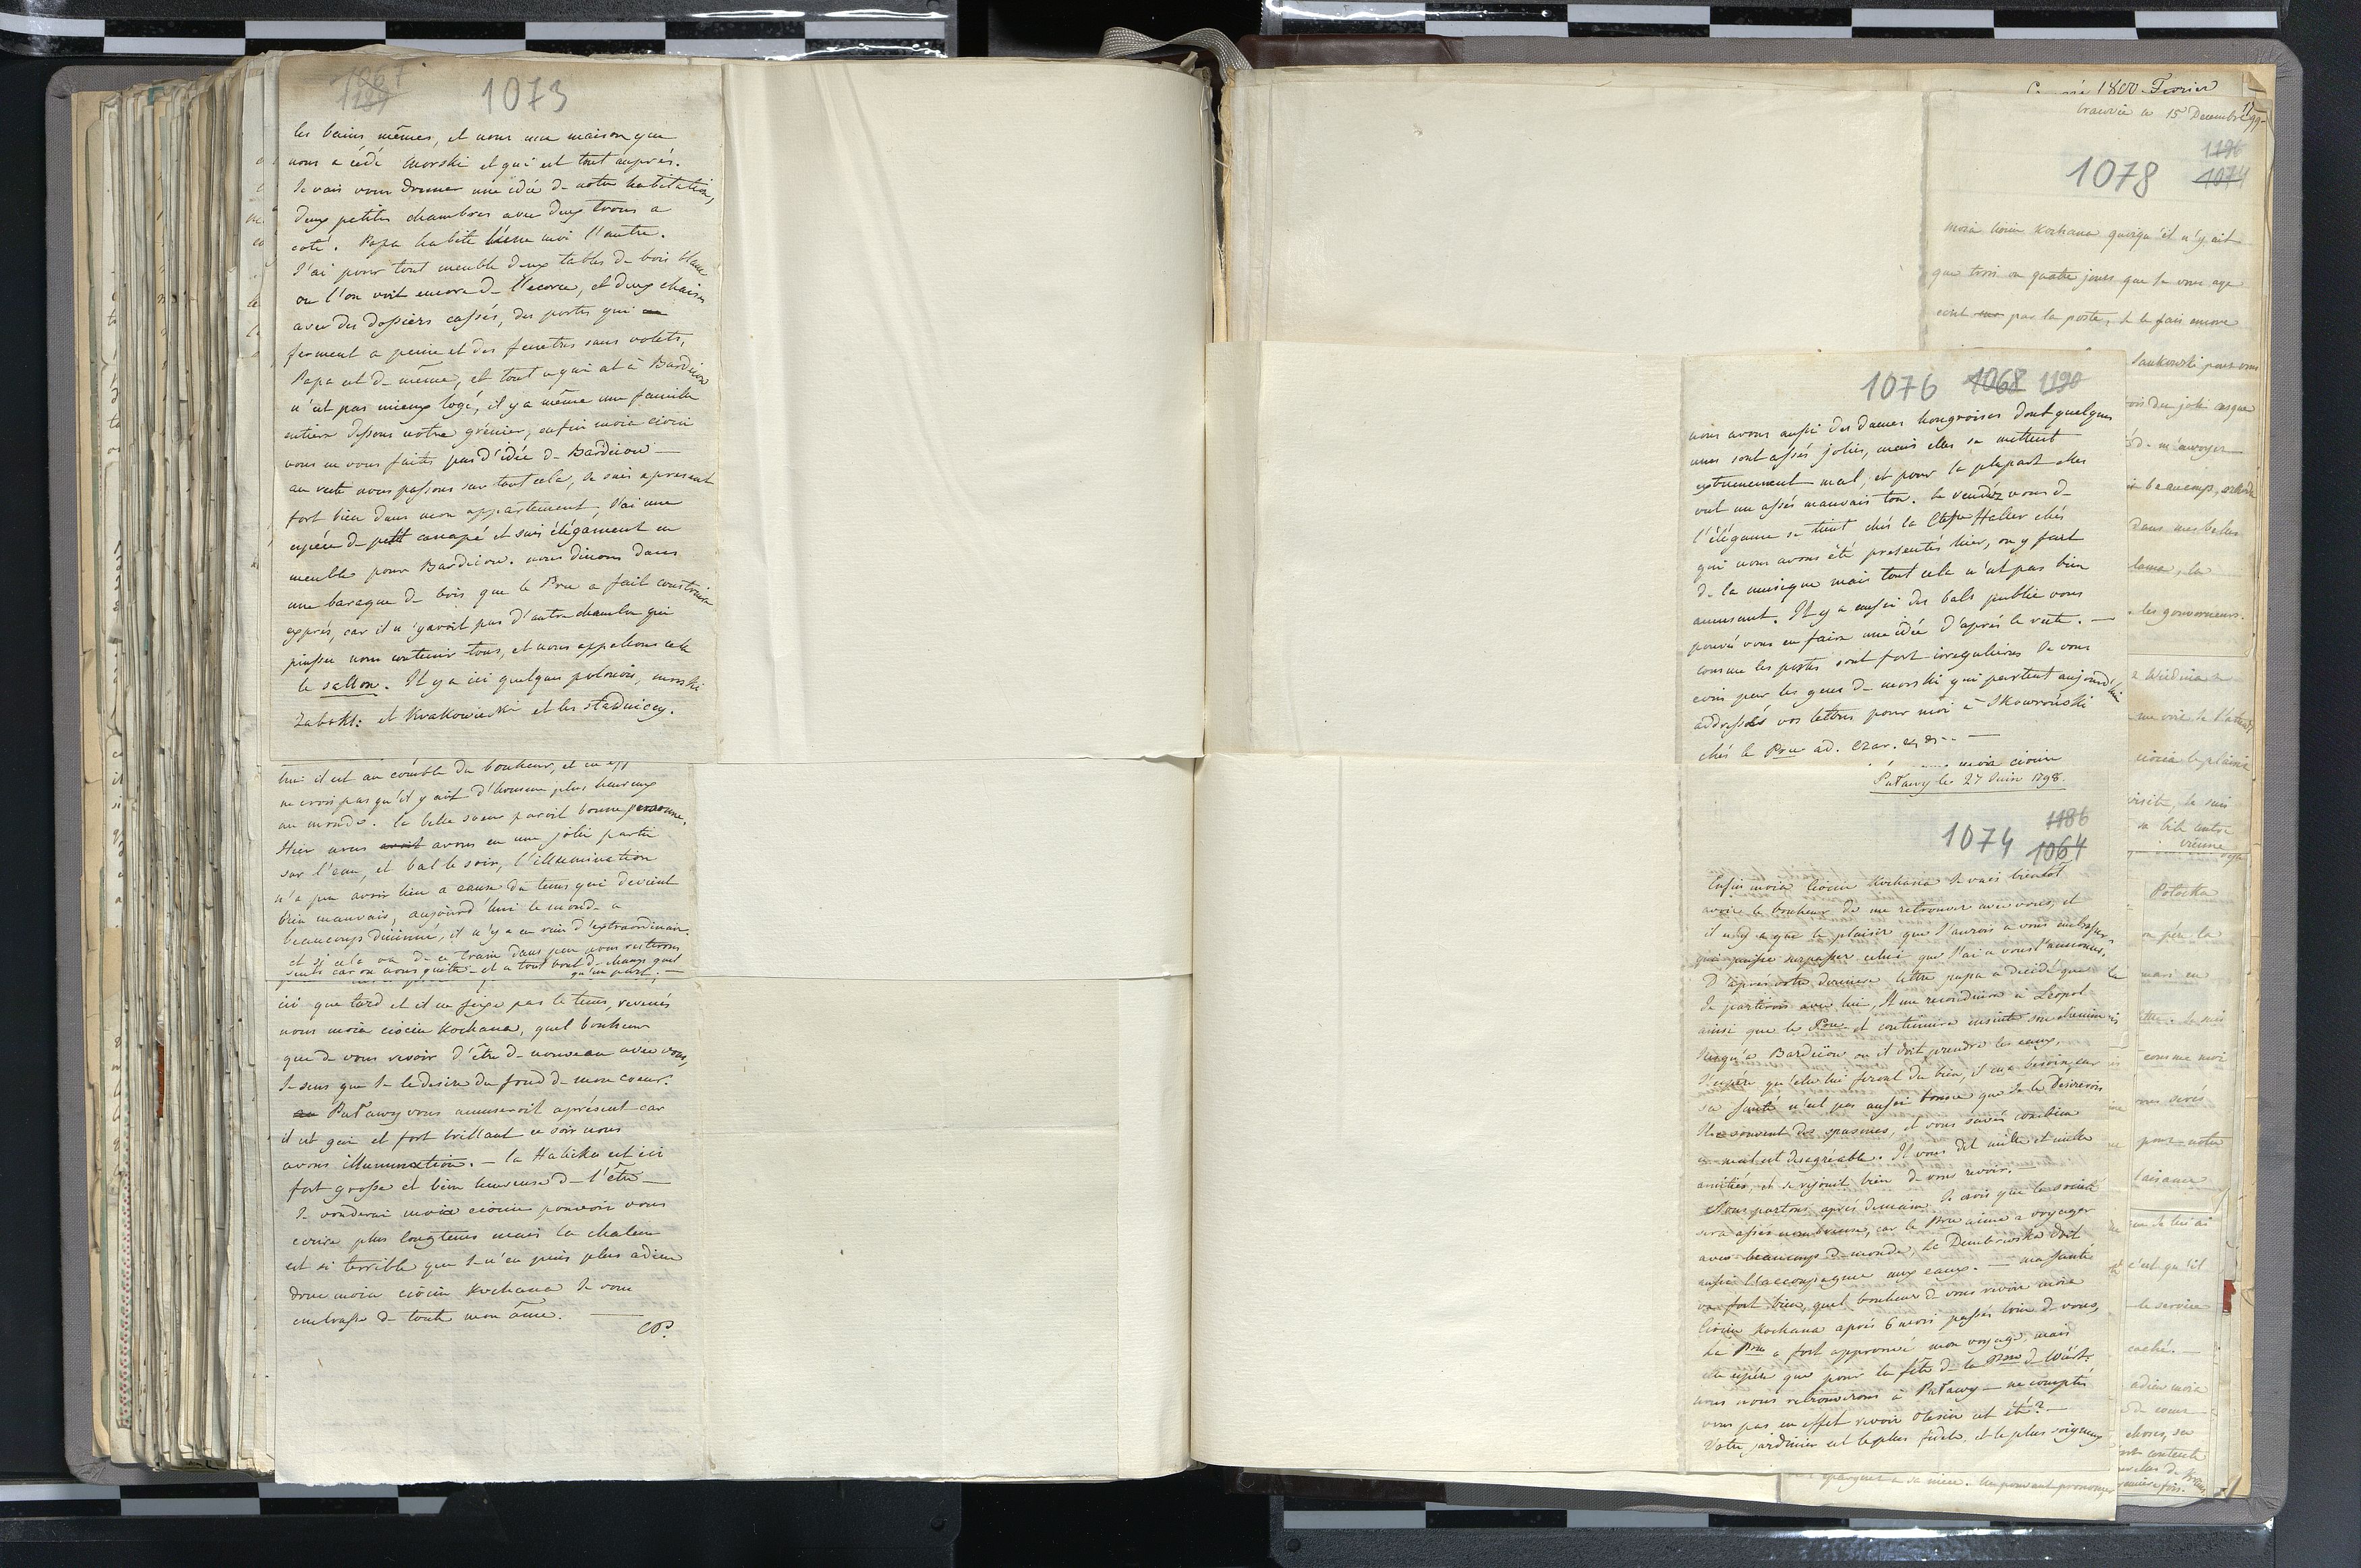 1067
1189
1073
les bains mêmes, et nous une maison que
nous a cédé Morski et qui est tout auprés.
Je vais vous donner une idée de notre habitation,
deux petites chambres avec deux trous a
coté. Papa habite l'une moi l'autre.
J'ai pour tout meuble deux tables de bois blanc
ou l'on voit encore de l'ecorce, et deux chaises
avec des dossiers cassés, des portes qui
ferment a peine et des fenetres sans volets,
Papa est de même, et tout ce qui est à Bardiow
n'est pas mieux logé, il y a même une famille
entiere dessous notre grénier, enfin moia ciociu
vous ne vous faites pas d'idée de Bardiow —
au reste nous passons sur tout cela, je suis apresent
fort bien dans mon appartement, j'ai une
espéce de petit canapé et suis élégament en
meubles pour Bardiow. nous dinons dans
une baraque de bois que le Pce a fait construire
exprés, car il n'y avoit pas d'autre chambre qui
puisse nous contenir tous, et nous appellons cela
le sallon. Il y a ici quelques polonois, Morski
Zabokl: et Krakowiecki et les Stadniccy.
lui il est au comble du bonheur, et en
ne crois pas qu'il y ait d'homme plus heureux
au monde. la belle soeur paroit bonne personne.
Hier nous avoit avons eu une jolie partie
sur l'eau, et bal le soir, l'illumination
n'a pu avoir lieu a cause du tems qui devient
bien mauvais, aujourd'hui le monde a
beaucoup diminué, il n'y a eu rien d'extraordinaire.
et si cela va de ce train dans peu nous resterons
seuls car on nous quitte et a tout bout de champ quel
qu'un part. —
ici que tard et il ne fixe pas le tems, revenés
nous moia ciociu Kochana, quel bonheur
que de vous revoir d'être de nouveau avec vous,
Je sens que je le desire du fond de mon coeur.
Puławy vous amuseroit aprésent car
il est gai et fort brillant ce soir nous
avons illumination. — la Halicka est ici
fort grosse et bien heureuse de l'être —
Je vouderai moia ciociu pouvoir vous
ecrire plus longtems mais la chaleur
est si terrible que je n'en puis plus adieu
donc moia ciociu Kochana Je vous
embrasse de toute mon âme. —
CP.
1800 Fevrier
le 15 Decembre 1799
1196
1074
1078
moia ciociu Kochana quoiqu'il n'y ait
que trois ou quatre jours que je vous aye
écrit par la poste, je le fais encore
Sankowski pour vous
du joli casque
de m'envoyer
beaucoup,
Dans mes belles
lama, la
les gouverneurs.
ciocia le plaisir
visite, je suis
sa tête
Potocka
peu la
mari en
comme moi
vous serés
pour notre
laisance
que je lui ai
c'est qu'il
le service
caché. —
adieu moia
de coeur
choses, sa
contente
1076 1068 1190
nous avons aussi des dames hongroises dont quelques
unes sont assés jolies, mais elles se mettent
extremement mal, et pour la plupart elles
ont un assés mauvais ton. Le rendéz vous de
l'élégance se tient chés la Ctesse Haller chés
qui nous avons été presentés hier, on y fait
de la musique mais tout cela n'est pas bien
amusant. Il y a aussi des bals publics vous
pouvés vous en faire une idée d'aprés le reste. —
comme les postes sont fort irregulieres Je vous
ecris par les gens de Morski qui partent aujourd'hui
addressés vos lettres pour moi à Skowroński
chés le Pce ad. Czar.
moia ciociu
Puławy le 27 Juin 1798.
1186
1074 1064
Enfin moia Ciociu Kochana Je vais bientôt
avoir le bonheur de me retrouver avec vous, et
il n'y a que le plaisir que j'aurois a vous embrasser
qui puisse surpasser celui que j'ai a vous l'annoncer.
D'aprés votre derniere lettre papa a décidé que
Je partirois avec lui, Il me reconduira à Léopol
ainsi que le Pce et continuera ensuite son chemin
Jusqu'a Bardiow ou il doit prendre les eaux,
J'espére qu'elles lui feront du bien, il en a besoin, car
sa santé n'est pas aussi bonne que je le desirerois
Il a souvent des spasmes, et vous savés combien
ce mal est desagréable. Il vous dit mille et mille
amitiés, et se rejouit bien de vous revoir.
Nous partons aprés demain. Je crois que la societé
sera assés nombreuse, car le Pce aime a voyager
avec beaucoup de monde, la Dembowska doit
aussi l'accompagner aux eaux. — ma santé
va fort bien, quel bonheur de vous revoir moia
Ciociu Kochana aprés 6 mois passés loin de vous,
La Pce a fort approuvé mon voyage, mais
elle espére que pour la fête de la Pce de Würt:
nous nous retrouverons à Puławy — ne comptés
vous pas en effet revoir Olesin cet été? —
Votre jardinier est le plus fidele, et le plus soigneux
epargnet a sa niéce. Un pouvant prononcer